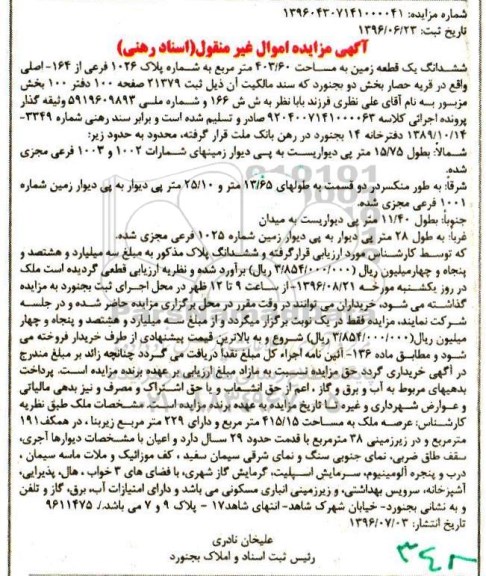 شماره مزایده: ۱۳۹۶۰۴۳۰۷۱۴۱۰۰۰۰۴۱
تاریخ ثبت: ۱۳۹۶/۰۶/۲۳
آگهی مزایده اموال غیر منقول(اسناد رهنی)
ششدانگ یک قطعه زمین به مساحت ۴۰۳/۶۰ متر مربع به شماره پلاک ۱۰۲۶ فرعی از ۱۶۴- اصلی
واقع در قریه حصار بخش دو بجنورد که سند مالکیت آن ذیل ثبت ۲۱۳۷۹ صفحه ۱۰۰ دفتر ۱۰۰ بخش
مزبور به نام آقای علی نظری فرزند بابا نظر به ش ش ۱۶۶ و شماره ملی ۵۹۱۹۶۰۹۸۹۳ وثیقه گذار
پرونده اجرائی کلاسه ۹۲۰۴۰۰۷۱۴۱۰۰۰۰۶۳ صادر و تسلیم شده است و برابر سند رهنی شماره ۳۳۴۹-
۱۳۸۹/۱۰/۱۴ دفترخانه ۱۴ بجنورد در رهن بانک ملت قرار گرفته، محدود به حدود زیر:
شمالاً: بطول ۱۵/۷۵ متر پی دیواریست به پی دیوار زمینهای شمارات ۱۰۰۲ و ۱۰۰۳ فرعی مجزی
شده.
شرقاً: به طور منکسردر دو قسمت به طولهای ۱۳/۶۵ متر و ۲۵/۱۰ متر پی دیوار به پی دیوار زمین شماره
۱۰۰۱ فرعی مجزی شده.
جنوباً: بطول ۱۱/۴۰ متر پی دیواریست به میدان
غرباً: به طول ۲۸ متر پی دیوار به پی دیوار زمین شماره ۱۰۲۵ فرعی مجزی شده.
که توسط کارشناس مورد ارزیابی قرارگرفته و ششدانگ پلاک مذکور به مبلغ سه میلیارد و هشتصد و
پنجاه و چهارمیلیون ریال (۳/۸۵۴/۰۰۰/۰۰۰ ریال) برآورد شده و نظریه ارزیابی قطعی گردیده است ملک
در روز یکشنبه مورخه ۱۳۹۶/۰۸/۲۱-از ساعت ۹ تا ۱۲ ظهر در محل اجرای ثبت بجنورد به مزایده
گذاشته می شود، خریداران می توانند در وقت مقرر در محل برگزاری مزایده حاضر شده و در جلسه
شرکت نمایند، مزایده فقط در یک نوبت برگزار میگردد و از مبلغ سه میلیارد و هشتصد و پنجاه و چهار
میلیون ریال(۳/۸۵۴/۰۰۰/۰۰۰ ریال) شروع و به بالاترین قیمت پیشنهادی از طرف خریدار فروخته می
شود و مطابق ماده ۱۳۶- آئین نامه اجراء کل مبلغ نقداً دریافت می گردد چنانچه زائد بر مبلغ مندرج
در آگهی خریداری گردد حق مزایده نسبت به مازاد مبلغ ارزیابی بر عهده برنده مزایده است. پرداخت
بدهیهای مربوط به آب و برق و گاز ، اعم از حق انشعاب و یا حق اشتراک و مصرف و نیز بدهی مالیاتی
و عوارض شهرداری و غیره تا تاریخ مزایده به عهده برنده مزایده است. مشخصات ملک طبق نظریه
کارشناس: عرصه ملک به مساحت ۴۱۵/۱۵ متر مربع و دارای ۲۲۹ متر مربع زیربنا ، در همکف۱۹۱
مترمربع و در زیرزمینی ۳۸ مترمربع با قدمت حدود ۲۹ سال دارد و اعیان با مشخصات دیوارها آجری،
سقف طاق ضربی، نمای جنوبی سنگ و نمای شرقی سیمان سفید ، کف موزائیک و ملات ماسه سیمان ،
درب و پنجره آلومینیوم، سرمایش اسپلیت، گرمایش گاز شهری، با فضای های ۳ خواب ، هال، پذیرایی،
آشپزخانه، سرویس بهداشتی، و زیرزمینی انباری مسکونی می باشد و دارای امتیازات آب، برق، گاز و تلفن
و به نشانی بجنورد- خیابان شهرک شاهد- انتهای شاهد۱۷ - پلاک ۹ و ۷ می باشد./ ۹۶۱۱۴۷۵
تاریخ انتشار: ۱۳۹۶/۰۷/۰۳
علیخان نادری
رئیس ثبت اسناد و املاک بجنورد